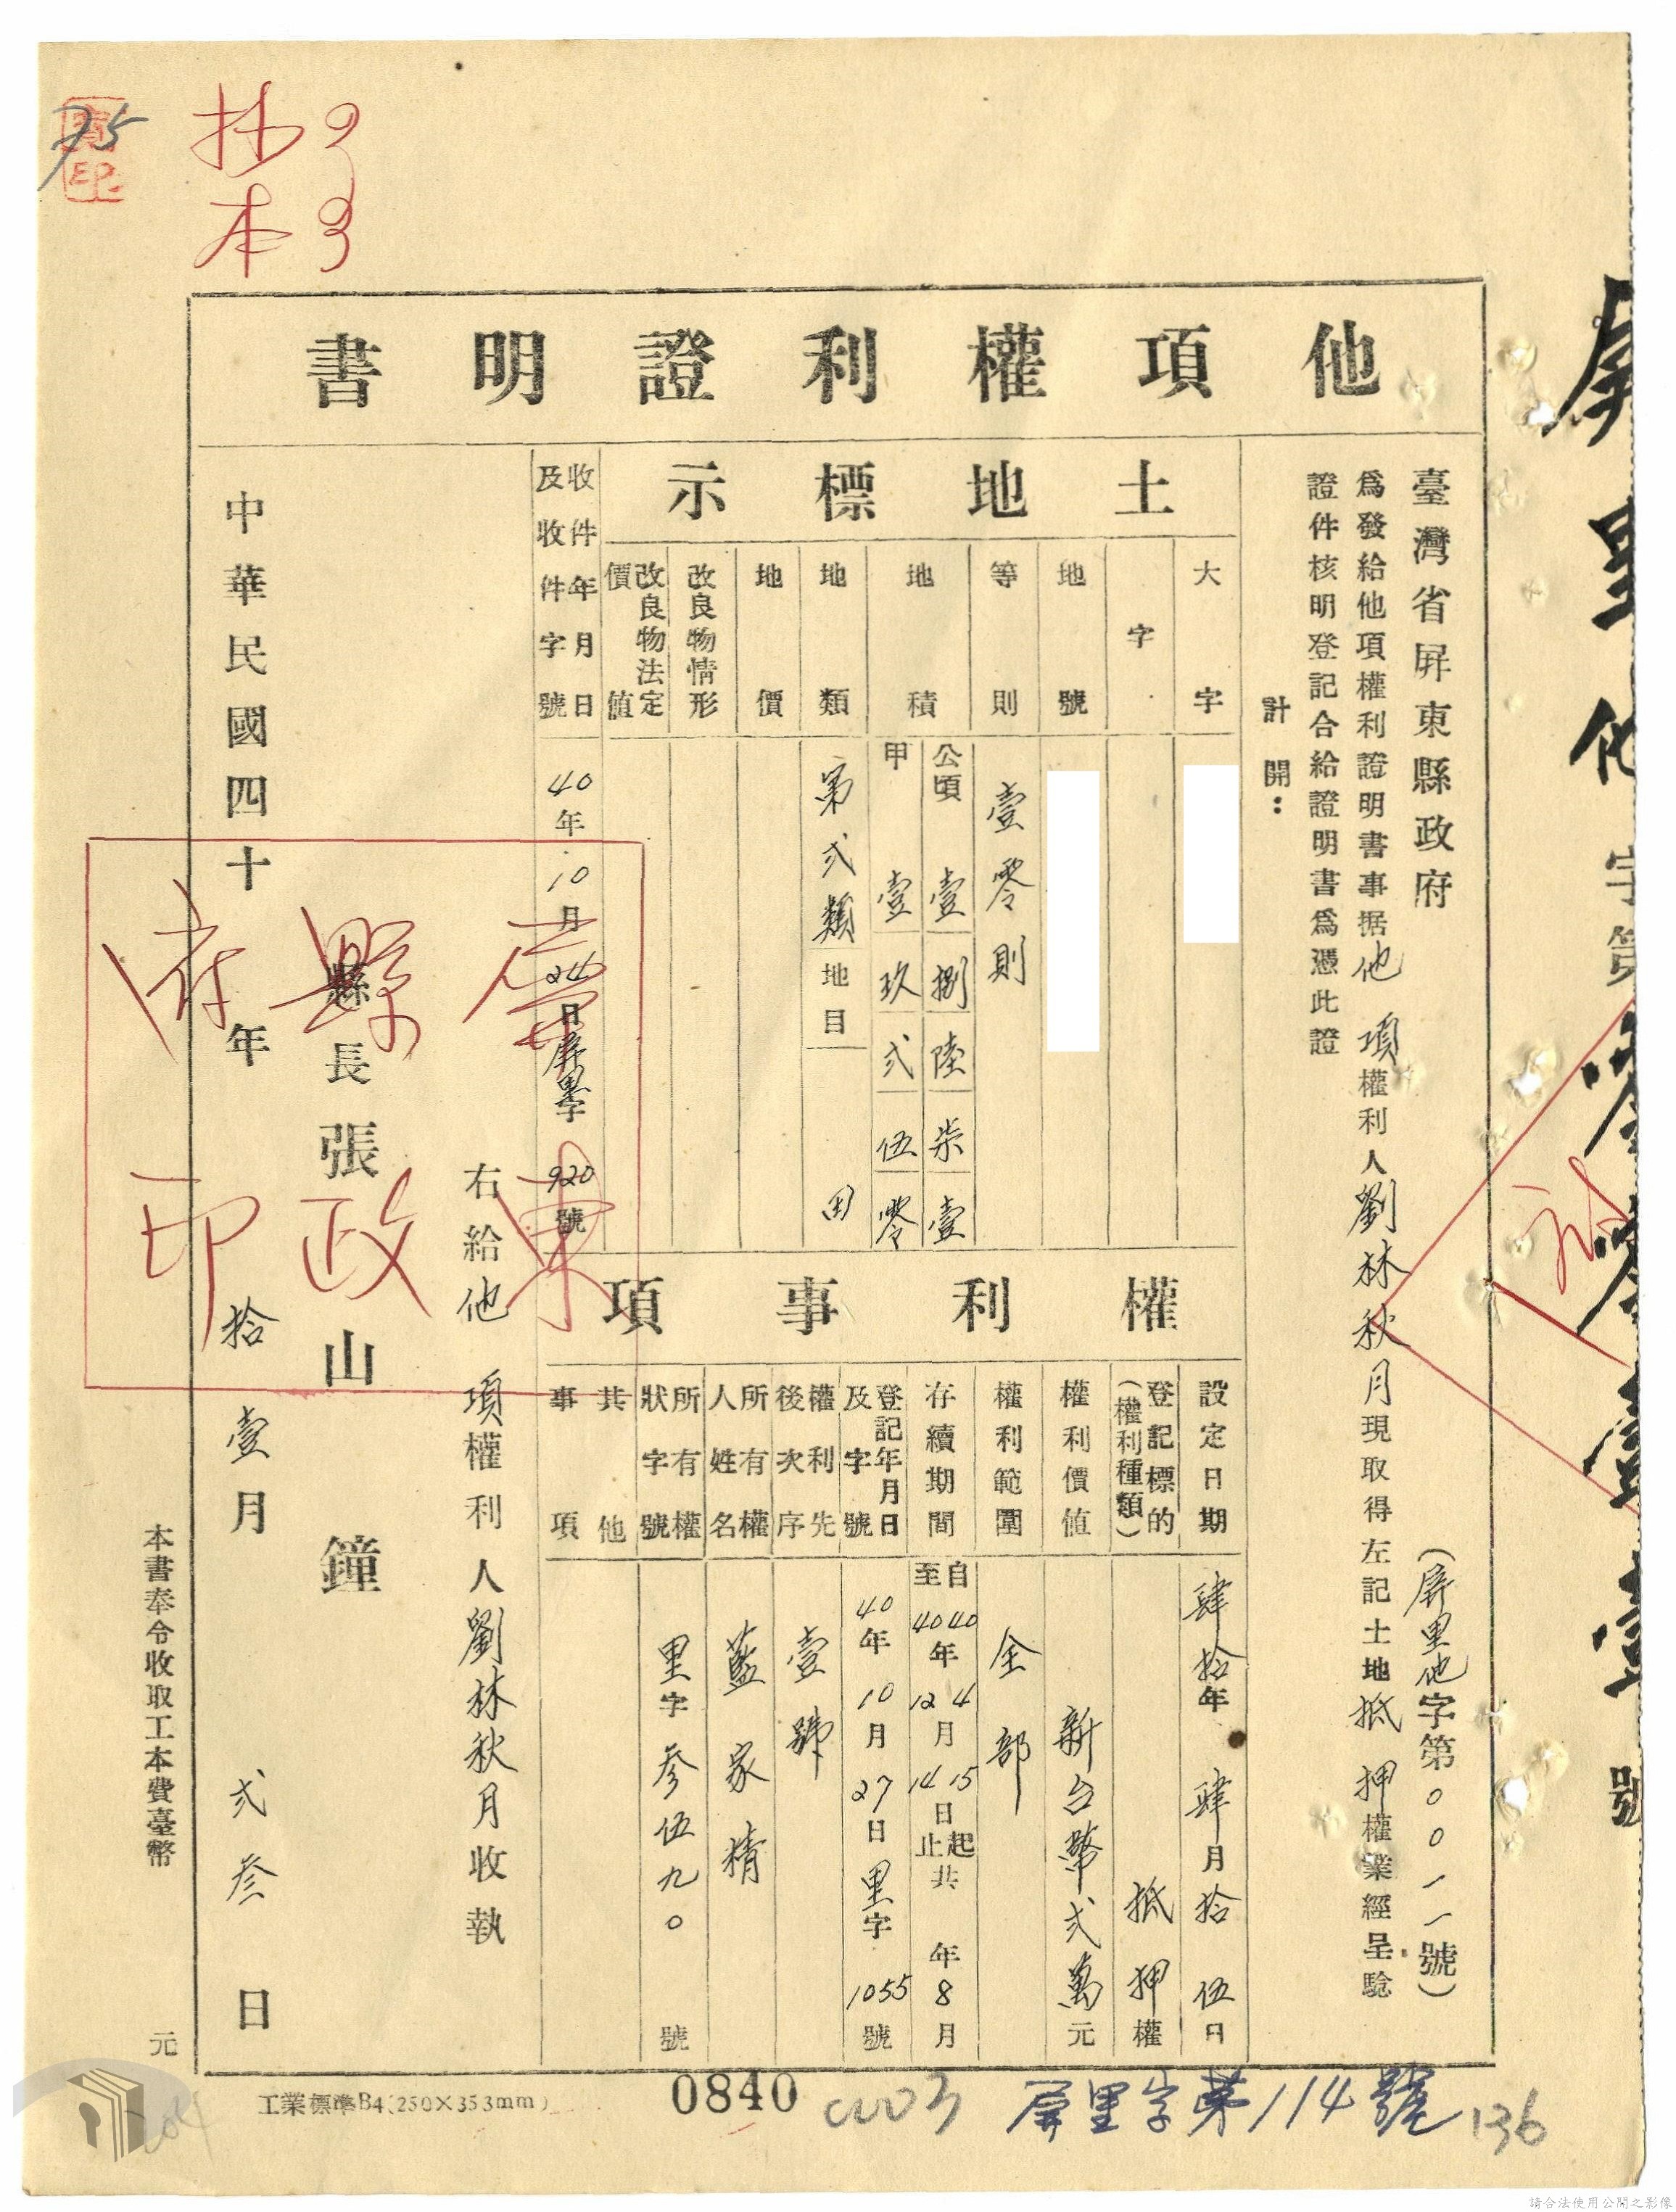 抄本
他項權利證明書
臺灣省屏東縣政府
(屏里他字第〇〇一一號)
為發給他項權利證明書事据他項權利人劉林秋月現取得左記土地抵押權業經呈驗
證件核明登記合給證明書為憑此證
計開：
土地標示
大字
字
地號
等則 壹零則
地積 公頃 壹捌陸柒壹
甲 壹玖弍伍零
地類 第弍類地目 田
地價
改良物情形
改良物法定價值
收件年月日及收件字號 40年10月24日屏里字920號
權利事項
設定日期 肆拾年肆月拾伍日
登記標的(權利種類) 抵押權
權利價值 新台幣弍萬元
權利範圍 全部
存續期間 自40年4月15日起
至40年12月14日止共 年8月
登記年月日及字號 40年10月27日里字1055號
權利先後次序 壹號
所有權人姓名 藍家精
所有權狀字號 里字參伍九〇號
其他事項
右給他項權利人劉林秋月收執
縣長張山鐘
中華民國四十年拾壹月弍參日
屏東縣政府印
本書奉令收取工本費臺幣 元
工業標準B4(250×353mm)
0840
屏里字第114號
136
75
請合法使用公開之影像